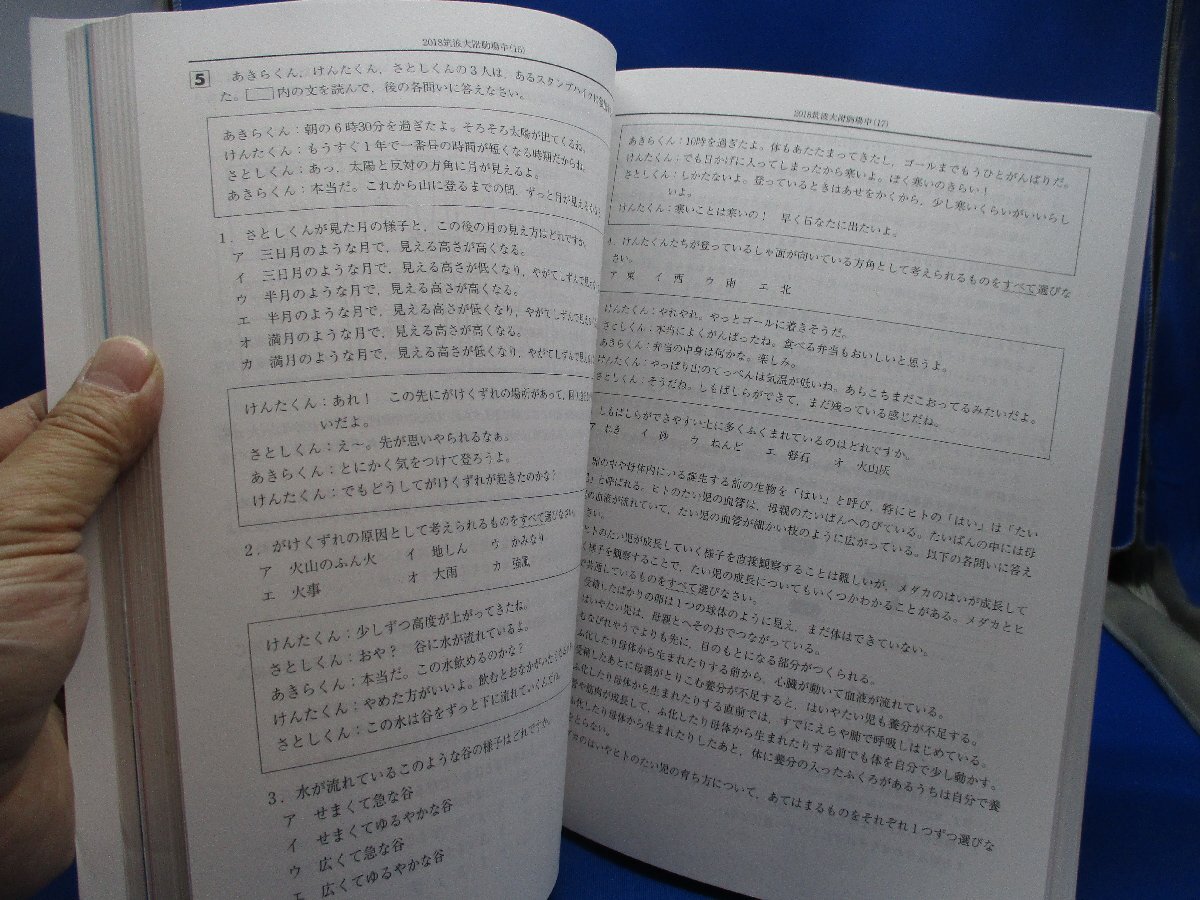 2018筑波大附駒場中(16)
5 あきらくん,けんたくん,さとしくんの3人は,あるスタンプハイクに
た。 内の文を読んで,後の各問いに答えなさい。
あきらくん:朝の6時30分を過ぎたよ。そろそろ太陽が出てくるね。
けんたくん:もうすぐ1年で一番昼の時間が短くなる時期だからね。
さとしくん:あっ,太陽と反対の方角に月が見えるよ。
あきらくん:本当だ。これから山に登るまでの間,ずっと月が見える
1.さとしくんが見た月の様子と,この後の月の見え方はどれですか。
ア 三日月のような月で,見える高さが高くなる。
イ 三日月のような月で,見える高さが低くなり,やがてしずんで
ウ 半月のような月で,見える高さが高くなる。
エ 半月のような月で,見える高さが低くなり,やがてしずんで
オ 満月のような月で,見える高さが高くなる。
カ 満月のような月で,見える高さが低くなり,やがてしずんで
けんたくん:あれ! この先にがけくずれの場所があって,
いだよ。
さとしくん:え~。先が思いやられるなぁ。
あきらくん:とにかく気をつけて登ろうよ。
けんたくん:でもどうしてがけくずれが起きたのかな?
2.がけくずれの原因として考えられるものをすべて選びなさい。
ア 火山のふん火 イ 地しん ウ かみなり
エ 火事 オ 大雨 カ 強風
けんたくん:少しずつ高度が上がってきたね。
さとしくん:おや? 谷に水が流れているよ。
あきらくん:本当だ。この水飲めるのかな?
けんたくん:やめた方がいいよ。飲むとおなかがいたくなる
さとしくん:この水は谷をずっと下に流れていくんだね。
3.水が流れているこのような谷の様子はどれですか。
ア せまくて急な谷
イ せまくてゆるやかな谷
ウ 広くて急な谷
エ 広くてゆるやかな谷
2018筑波大附駒場中(17)
あきらくん:10時を過ぎたよ。体もあたたまってきたし,ゴールまでもうひとがんばりだ。
けんたくん:でも日かげに入ってしまったから寒いよ。ぼく寒いのきらい!
さとしくん:しかたないよ。登っているときはあせをかくから,少し寒いくらいがいいらし
いよ。
けんたくん:寒いことは寒いの! 早く日なたに出たいよ。
4.けんたくんたちが登っているしゃ面が向いている方角として考えられるものをすべて選びな
さい。
ア 東 イ 西 ウ 南 エ 北
けんたくん:やれやれ。やっとゴールに着きそうだ。
さとしくん:本当によくがんばったね。食べる弁当もおいしいと思うよ。
あきらくん:弁当の中身は何かな。楽しみ。
けんたくん:やっぱり山のてっぺんは気温が低いね。あちこちまだこおってるみたいだよ。
さとしくん:そうだね。しもばしらができて,まだ残っている感じだね。
しもばしらができやすい土に多くふくまれているのはどれですか。
ア れき イ 砂 ウ ねんど エ 軽石 オ 火山灰
卵の中や母体内にいる誕生する前の生物を「はい」と呼び,特にヒトの「はい」は「たい
」と呼ばれる。ヒトのたい児の血管は,母親のたいばんへのびている。たいばんの中には母
の血液が流れていて,たい児の血管が細かい枝のように広がっている。以下の各問いに答え
さい。
ヒトのたい児が成長していく様子を直接観察することは難しいが,メダカのはいが成長して
く様子を観察することで,たい児の成長についてもいくつかわかることがある。メダカとヒ
で共通しているものをすべて選びなさい。
受精したばかりの卵は1つの球体のように見え,まだ体はできていない。
はいやたい児は,母親とへそのおでつながっている。
むなびれやうでよりも先に,目のもとになる部分がつくられる。
ふ化したり母体から生まれたりする前から,心臓が動いて血液が流れている。
受精したあとに母親がとりこむ養分が不足すると,はいやたい児も養分が不足する。
ふ化したり母体から生まれたりする直前では,すでにえらや肺で呼吸しはじめている。
骨や筋肉が成長して,ふ化したり母体から生まれたりする前でも体を自分で少し動かす。
ふ化したり母体から生まれたりしたあと,体に養分の入ったふくろがあるうちは自分で養
をとらない。
ダカのはいやヒトのたい児の育ち方について,あてはまるものをそれぞれ1つずつ選びな